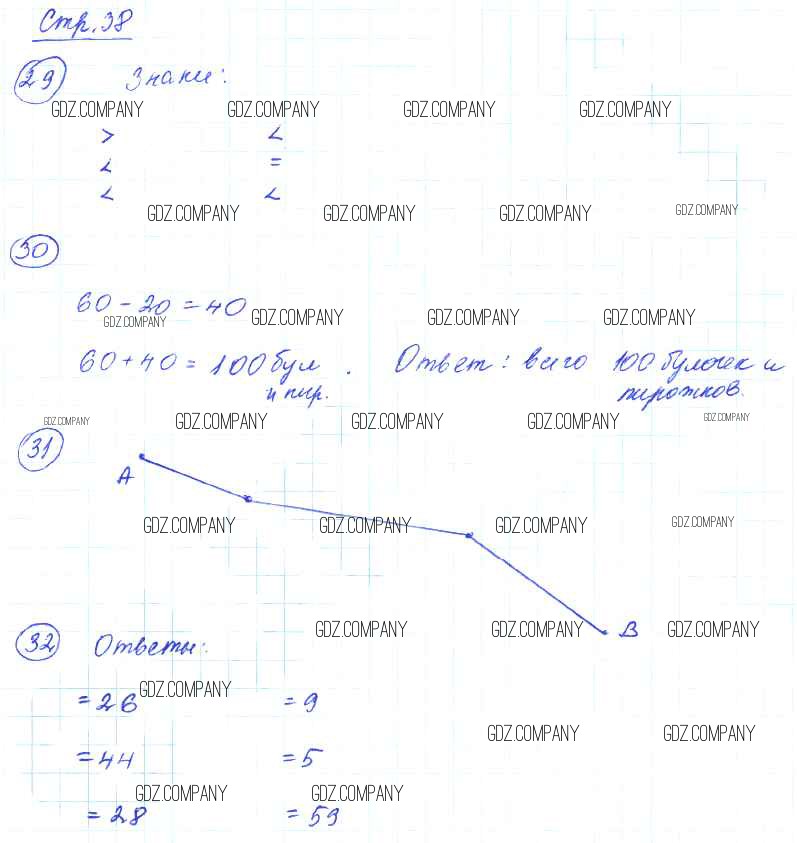 Стр. 38
29 Знаки:
GDZ.COMPANY GDZ.COMPANY GDZ.COMPANY GDZ.COMPANY
> <
< =
< <
GDZ.COMPANY GDZ.COMPANY GDZ.COMPANY GDZ.COMPANY
30
60 - 20 = 40
GDZ.COMPANY GDZ.COMPANY GDZ.COMPANY GDZ.COMPANY
60 + 40 = 100 бул и пир. Ответ: всего 100 булочек и пирожков.
GDZ.COMPANY GDZ.COMPANY GDZ.COMPANY GDZ.COMPANY GDZ.COMPANY
31
A
GDZ.COMPANY GDZ.COMPANY GDZ.COMPANY GDZ.COMPANY
B
GDZ.COMPANY GDZ.COMPANY GDZ.COMPANY
32 Ответы:
GDZ.COMPANY
= 26 = 9
GDZ.COMPANY GDZ.COMPANY
= 44 = 5
GDZ.COMPANY GDZ.COMPANY
= 28 = 59